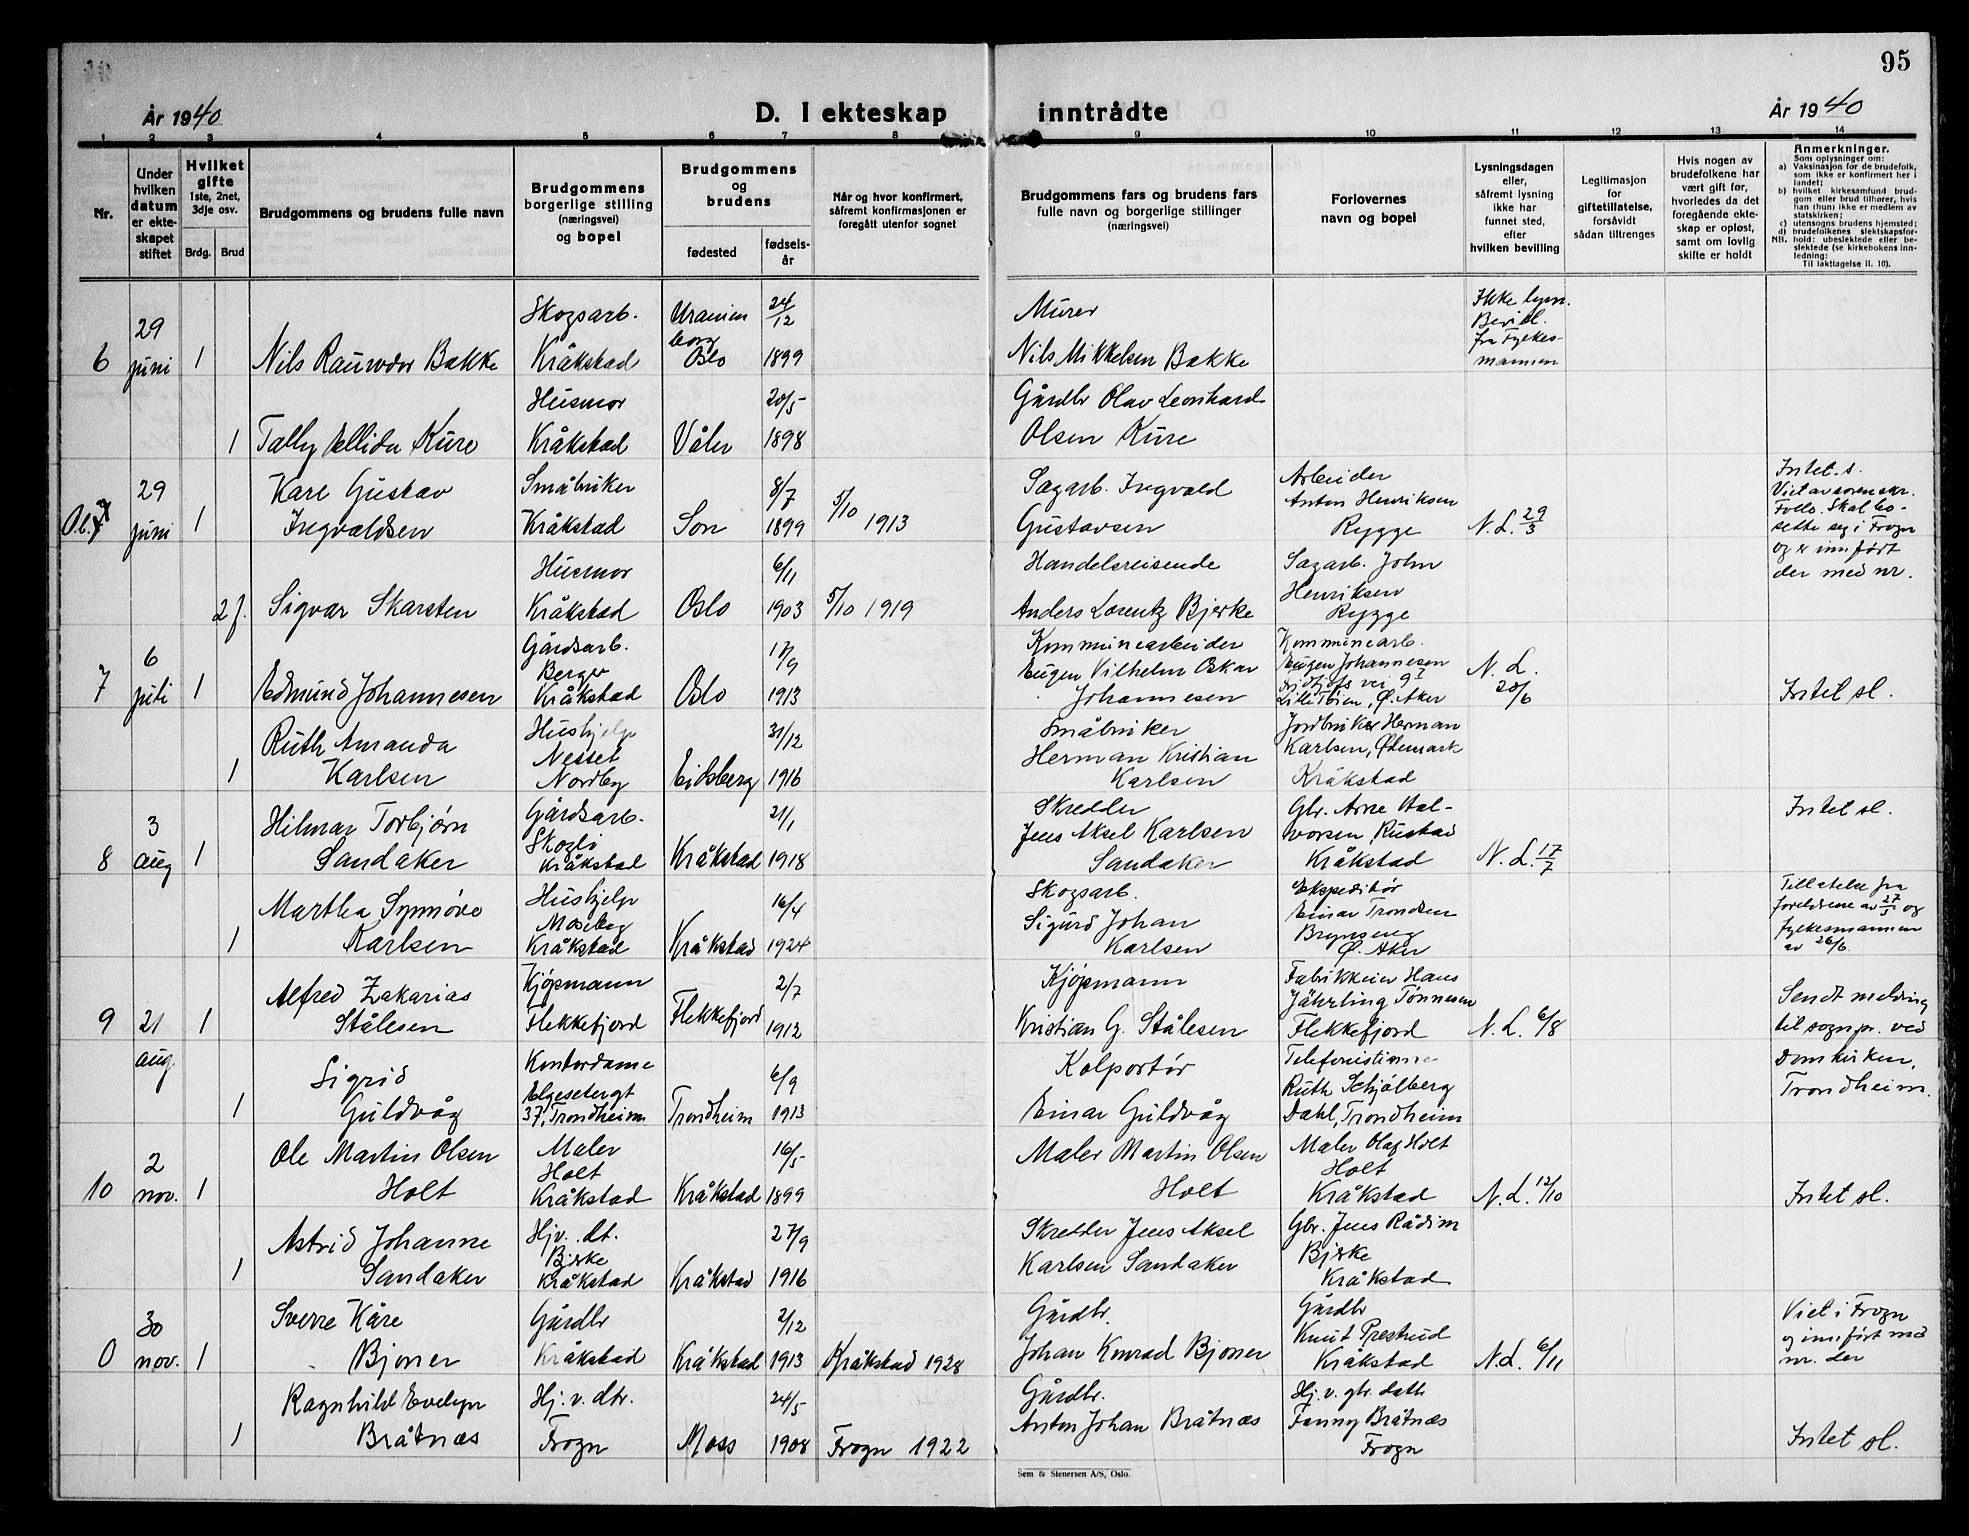 95
År 1940
D. I ekteskap inntrådte
År 1940
1 2 3 4 5 6 7 8 9 10 11 12 13 14
Nr.
Under hvilken datum er ekteskapet stiftet
Hvilket gifte
1ste, 2net, 3dje osv.
Brdg. Brud
Brudgommens og brudens fulle navn
Brudgommens borgerlige stilling (næringsvei) og bopel
Brudgommens og brudens
fødested
fødselsår
Når og hvor konfirmert, såfremt konfirmasjonen er foregått utenfor sognet
Brudgommens fars og brudens fars fulle navn og borgerlige stillinger (næringsvei)
Forlovernes navn og bopel
Lysningsdagen eller, såfremt lysning ikke har funnet sted, efter hvilken bevilling
Legitimasjon for giftetillatelse, forsåvidt sådan tiltrenges
Hvis nogen av brudefolkene har vært gift før, hvorledes da det foregående ekteskap er opløst, samt om lovlig skifte er holdt
Anmerkninger.
Som oplysninger om:
a) Vaksinasjon for de brudefolk, som ikke er konfirmert her i landet;
b) hvilket kirkesamfund brudgom eller brud tilhører, hvis han (hun) ikke er medlem av statskirken;
c) utensogns brudens hjemsted;
d) brudefolkenes slektskapsforhold: ubeslektede eller beslektede (se kirkebokens innledning;
NB. Til iakttagelse II. 10).
6 29 juni 1 Nils Raunvdor Bakke
Skogsarb. Kråkstad
Uranienborg Oslo
24/12 1899
Murer
Nils Mikkelsen Bakke
Ikke lysn.
Bevil.
fra Fylkes-
mannen
1 Tally Ellida Kure
Husmor Kråkstad
Våler
20/5 1898
Gårdbr Olav Leonhard
Olsen Kure
29 juni 1 Kare Gustav
Ingvaldsen
Småbruker Kråkstad
Son
8/7 1899
5/10 1913
Sagarb. Ingvald
Gustavsen
Arbeider
Anton Henriksen
Rygge
N.L. 29/3
Intet s.
Viet av sorenskr.
Follo. Skal bo-
sette seg i Frogn
og er innført
der med nr.
2 f. Sigvar Skarsten
Husmor Kråkstad
Oslo
6/11 1903
5/10 1919
Handelsreisende
Anders Lorentz Bjerke
Sagarb. John
Henriksen
Rygge
7 6 juli 1 Edmund Johannesen
Gårdsarb. Berger Kråkstad
Oslo
17/9 1913
Kommunearbeider
Eugen Vilhelm Oskar
Johannesen
Kommunearb.
Eugen Johannesen
Fridtjofs vei 9 I
Lille Tøien, Ø. Aker
N.L. 20/6
Intet sl.
1 Ruth Amanda
Karlsen
Hushjelp Nesset Nordby
Eidsberg
31/12 1916
Småbruker
Herman Kristian
Karlsen
Jordbruker Herman
Karlsen, Ødemark
Kråkstad
8 3 aug 1 Hilmar Torbjørn
Sandaker
Gårdsarb. Skogli Kråkstad
Kråkstad
21/1 1918
Skredder
Jens Aksel Karlsen
Sandaker
Gbr. Arne Hal-
vorsen, Rustad
Kråkstad
N.L. 17/7
Intet sl.
1 Martha Synnøve
Karlsen
Hushjelp Moseby Kråkstad
Kråkstad
16/4 1924
Skogsarb.
Sigurd Johan
Karlsen
Ekspeditør
Einar Trondsen
Brynseng
Ø. Aker
Tillatelse fra
foreldrene av 27/5 og
fylkesmannen
av 26/6.
9 21 aug. 1 Alfred Zakarias
Stålesen
Kjøpmann Flekkefjord
Flekkefjord
2/7 1912
Kjøpmann
Kristian G. Stålesen
Fabrikkeier Hans
Jährling Tønnesen
Flekkefjord
N.L. 6/8
Sendt melding
til sognpr. ved
Domkirken,
Trondheim.
1 Sigrid
Guldvåg
Kontordame
Elgesetergt
37, Trondheim
Trondheim
6/9 1913
Kolportør
Einar Guldvåg
Telefonistinne
Ruth Schjølberg
Dahl, Trondheim
10 2 nov. 1 Ole Martin Olsen
Holt
Maler Holt Kråkstad
Kråkstad
16/5 1899
Maler Martin Olsen
Holt
Maler Olaf Holt
Holt
Kråkstad
N.L. 12/10
Intet sl.
1 Astrid Johanne
Sandaker
Hjv. dt. Bjerke Kråkstad
Kråkstad
27/9 1916
Skredder Jens Aksel
Karlsen Sandaker
Gbr. Jens Rådim
Bjerke
Kråkstad
0 30 nov. 1 Sverre Kåre
Bjoner
Gårdbr Kråkstad
Kråkstad
2/12 1913
Kråkstad 1928
Gårdbr.
Johan Konrad Bjoner
Gårdbr
Knut Prestrud
Kråkstad
N.L. 6/11
Viet i Frogn
og innført med
nr. der
1 Ragnhild Evelyn
Bråtnæs
Hj. v. dtr. Frogn
Moss
24/5 1908
Frogn 1922
Gårdbr.
Anton Johan Bråtnæs
Hj. v. gbr. datt
Fanny Bråtnæs
Frogn
Intet sl.
Sem & Stenersen A/S, Oslo.